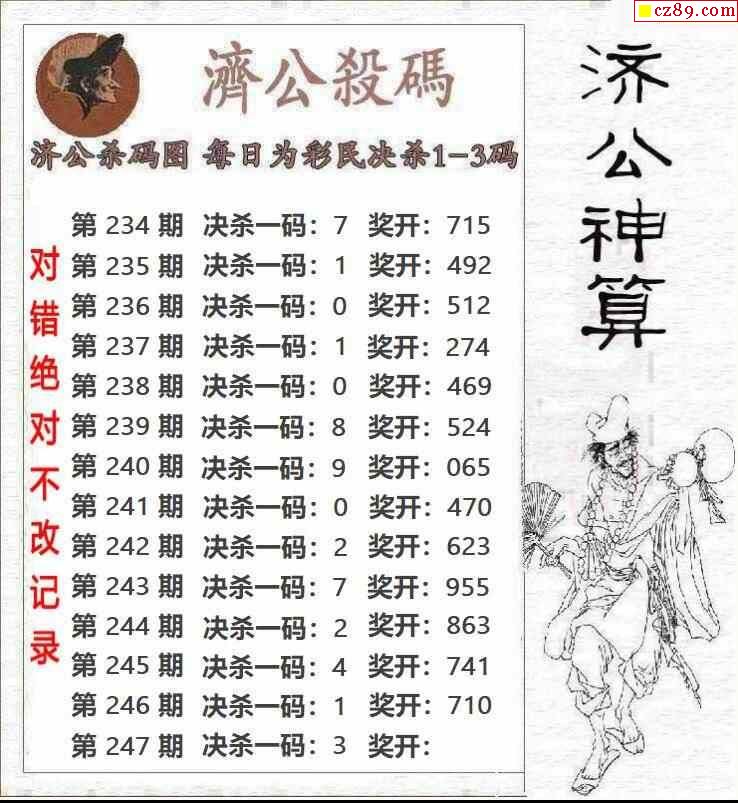 cz89.com
濟公殺碼
济公杀码图 每日为彩民决杀1-3码
第 234 期 决杀一码：7 奖开：715
第 235 期 决杀一码：1 奖开：492
第 236 期 决杀一码：0 奖开：512
第 237 期 决杀一码：1 奖开：274
第 238 期 决杀一码：0 奖开：469
第 239 期 决杀一码：8 奖开：524
第 240 期 决杀一码：9 奖开：065
第 241 期 决杀一码：0 奖开：470
第 242 期 决杀一码：2 奖开：623
第 243 期 决杀一码：7 奖开：955
第 244 期 决杀一码：2 奖开：863
第 245 期 决杀一码：4 奖开：741
第 246 期 决杀一码：1 奖开：710
第 247 期 决杀一码：3 奖开：
对错绝对不改记录
济公神算